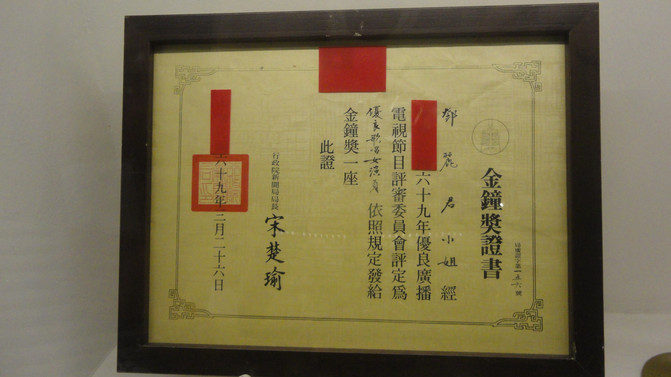 金鐘獎證書
鄧麗君小姐經
六十九年優良廣播
電視節目評審委員會評定為
優良歌唱女演員依照規定發給
金鐘獎一座
此證
行政院新聞局局長宋楚瑜
六十九年三月二十六日